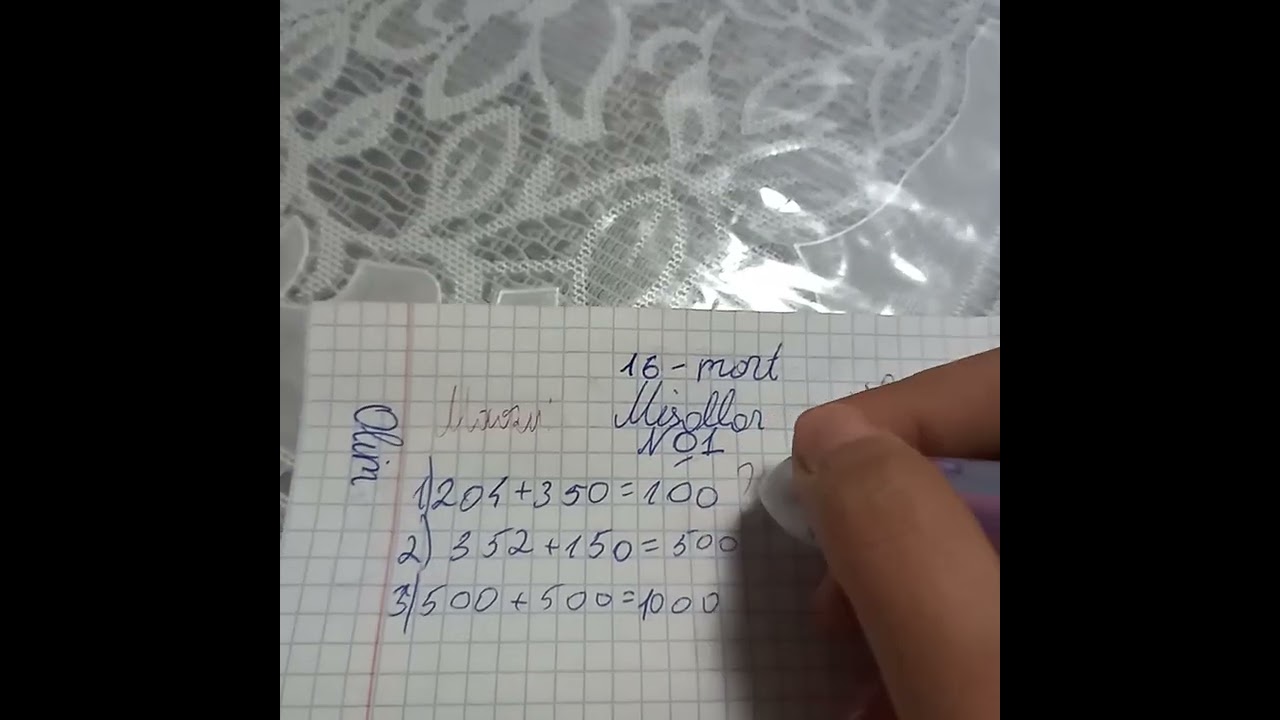 16 - mart
Misollar
№1
Olim
1) 204+350=100
2) 352+150=500
3) 500+500=1000